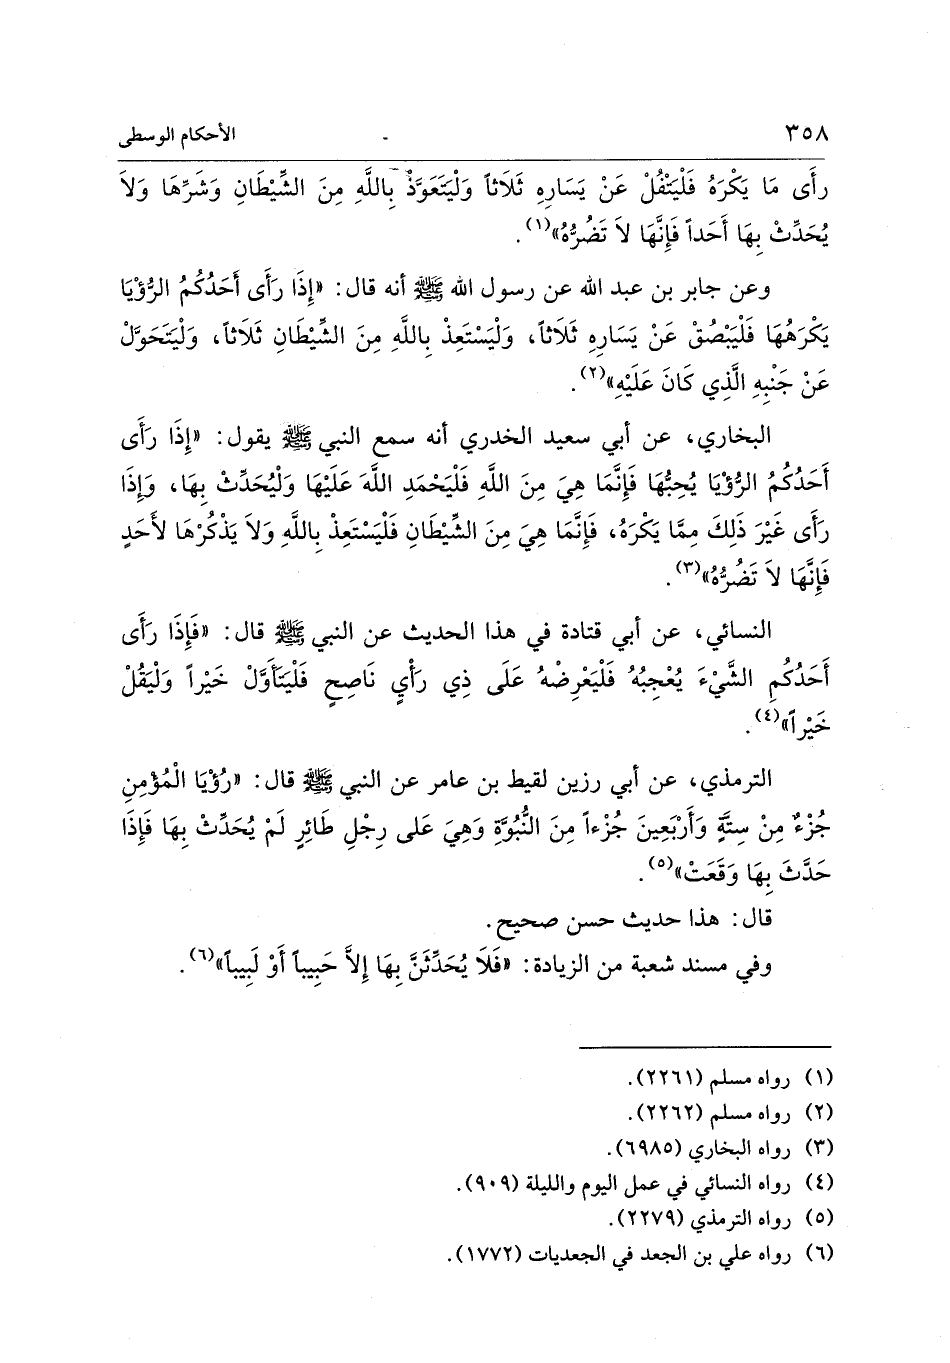 ٣٥٨
الأحكام الوسطى
رأَى مَا يَكْرَهُ فَلْيَتْفُلْ عَنْ يَسَارِهِ ثَلَاثاً وَلْيَتَعَوَّذْ بِاللَّهِ مِنَ الشِّيْطَانِ وَشَرِّهَا وَلاَ
يُحَدِّثْ بِهَا أَحَداً فَإِنَّهَا لاَ تَضُرُّهُ»(١).
وعن جابر بن عبد الله عن رسول الله ﷺ أنه قال: «إِذَا رَأَى أَحَدُكُمُ الرُّؤْيَا
يَكْرَهُهَا فَلْيَبْصُقْ عَنْ يَسَارِهِ ثَلَاثاً، وَلْيَسْتَعِذْ بِاللَّهِ مِنَ الشِّيْطَانِ ثَلَاثاً، وَلْيَتَحَوَّلْ
عَنْ جَنْبِهِ الَّذِي كَانَ عَلَيْهِ»(٢).
البخاري، عن أبي سعيد الخدري أنه سمع النبي ﷺ يقول: «إِذَا رَأَى
أَحَدُكُمُ الرُّؤْيَا يُحِبُّهَا فَإِنَّمَا هِيَ مِنَ اللَّهِ فَلْيَحْمَدِ اللَّهَ عَلَيْهَا وَلْيُحَدِّثْ بِهَا، وَإِذَا
رَأَى غَيْرَ ذَلِكَ مِمَّا يَكْرَهُ، فَإِنَّمَا هِيَ مِنَ الشِّيْطَانِ فَلْيَسْتَعِذْ بِاللَّهِ وَلاَ يَذْكُرْهَا لأَحَدٍ
فَإِنَّهَا لاَ تَضُرُّهُ»(٣).
النسائي، عن أبي قتادة في هذا الحديث عن النبي ﷺ قال: «فَإِذَا رَأَى
أَحَدُكُمِ الشَّيْءَ يُعْجِبُهُ فَلْيَعْرِضْهُ عَلَى ذِي رَأْيٍ نَاصِحٍ فَلْيَتَأَوَّلْ خَيْراً وَلْيَقُلْ
خَيْراً»(٤).
الترمذي، عن أبي رزين لقيط بن عامر عن النبي ﷺ قال: «رُؤْيَا الْمُؤْمِنِ
جُزْءٌ مِنْ سِتَّةٍ وَأَرْبَعِينَ جُزْءاً مِنَ النُّبُوَّةِ وَهِيَ عَلَى رِجْلِ طَائِرٍ لَمْ يُحَدِّثْ بِهَا فَإِذَا
حَدَّثَ بِهَا وَقَعَتْ»(٥).
قال: هذا حديث حسن صحيح.
وفي مسند شعبة من الزيادة: «فَلَا يُحَدِّثَنَّ بِهَا إِلاَّ حَبِيباً أَوْ لَبِيباً»(٦).
(١) رواه مسلم (٢٢٦١).
(٢) رواه مسلم (٢٢٦٢).
(٣) رواه البخاري (٦٩٨٥).
(٤) رواه النسائي في عمل اليوم والليلة (٩٠٩).
(٥) رواه الترمذي (٢٢٧٩).
(٦) رواه علي بن الجعد في الجعديات (١٧٧٢).